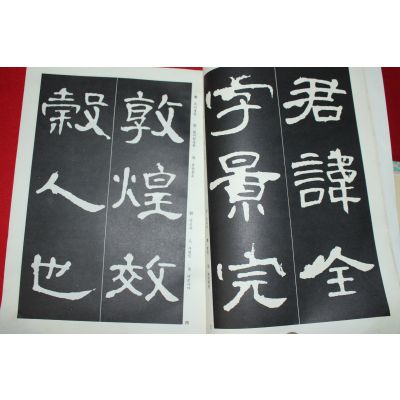 君諱全
字景完
敦煌效
穀人也